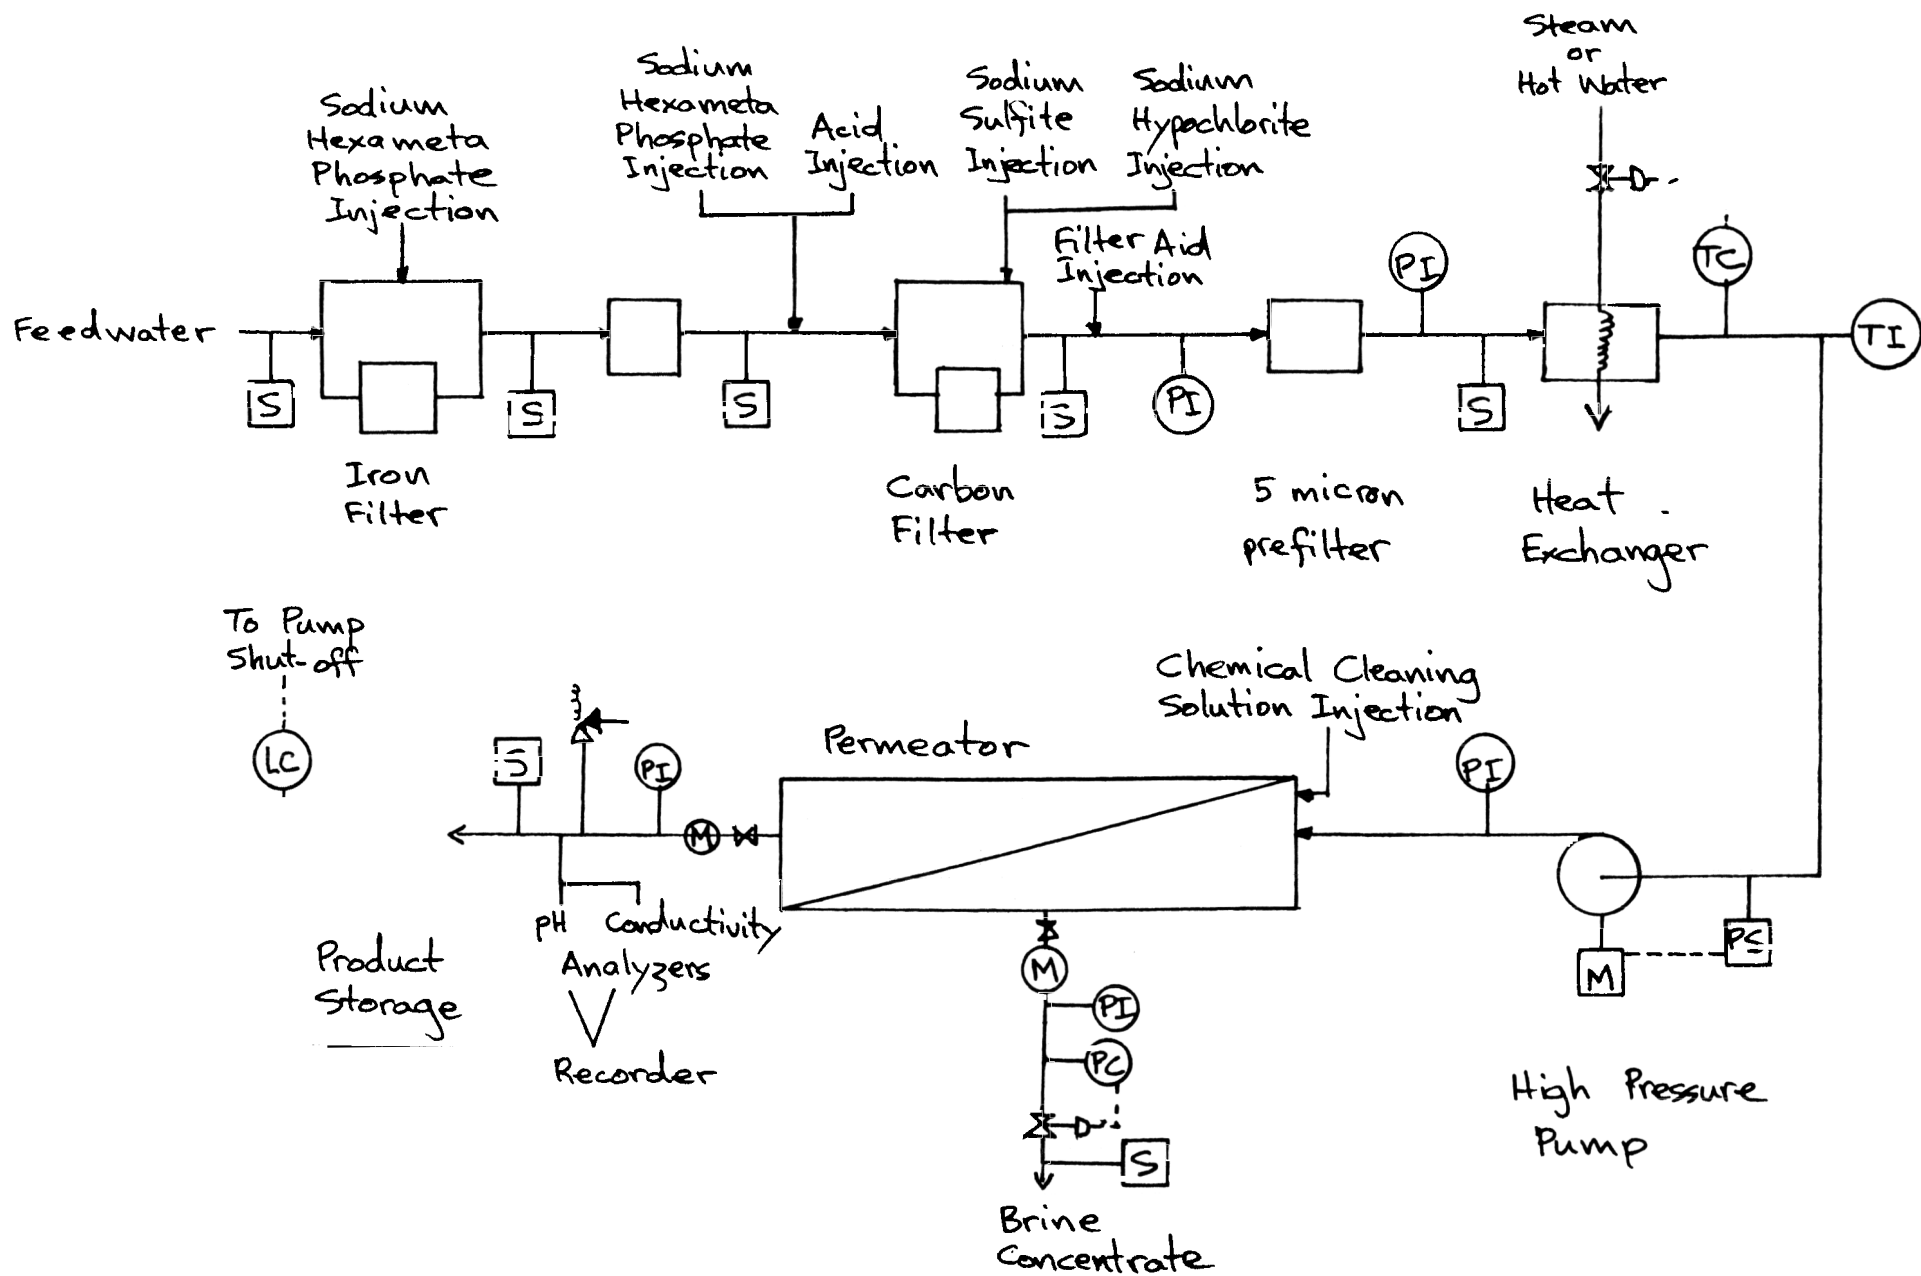 Steam
or
Hot Water
Sodium
Hexameta
Phosphate
Injection
Sodium
Hexameta
Phosphate
Injection
Acid
Injection
Sodium
Sulfite
Injection
Sodium
Hypochlorite
Injection
Filter Aid
Injection
PI
TC
Feedwater
TI
S
S
S
S
PI
S
Iron
Filter
Carbon
Filter
5 micron
prefilter
Heat
Exchanger
To Pump
Shut-off
LC
S
PI
Permeator
Chemical Cleaning
Solution Injection
PI
M
pH Conductivity
Analyzers
Recorder
Product
Storage
M
PI
PC
S
Brine
Concentrate
PS
M
High Pressure
Pump